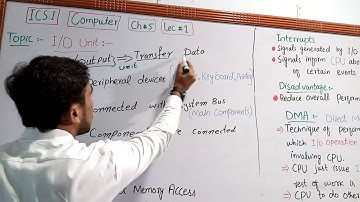 ICS I Computer Ch#5 Lec#1
Topic:- I/O Unit:-
Output) ⇒ Transfer Data
unit
Peripheral devices Keyboard,
connected with System Bus
(Main Components)
Connected
Memory Access
Interrupts
Signals generated by I/O
Signals inform CPU
of certain events
Disadvantage:-
Reduce overall
DMA:- Direct
⇒ Technique of
which I/O operation
involving CPU.
⇒ CPU just issue I
rest of work is
⇒ CPU do other